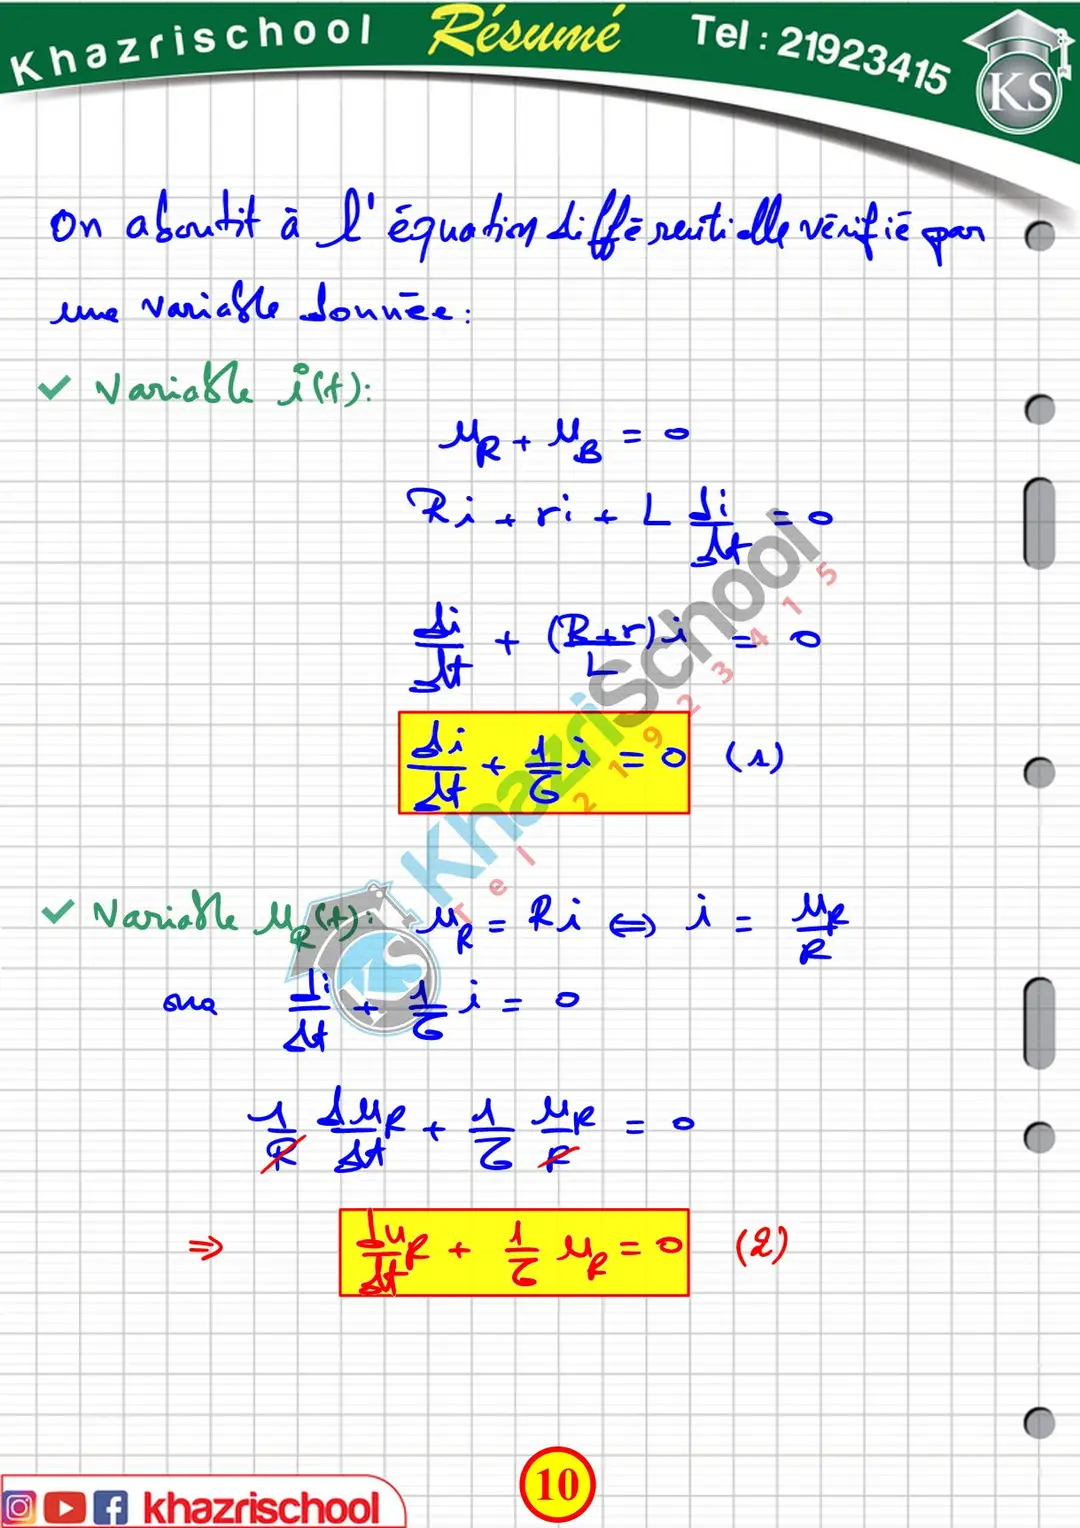 Khazrischool Résumé Tel : 21923415
KS
On aboutit à l'équation différentielle vérifié par
une variable donnée :
✓ Variable i(t):
u_R + u_B = 0
Ri + ri + L di/dt = 0
di/dt + (R+r)/L i = 0
di/dt + 1/τ i = 0 (1)
✓ Variable u_R(t): u_R = Ri ⇔ i = u_R/R
ona di/dt + 1/τ i = 0
1/R du_R/dt + 1/τ u_R/R = 0
⇒ du_R/dt + 1/τ u_R = 0 (2)
KhazriSchool
Tel 21923415
KS
10
khazrischool